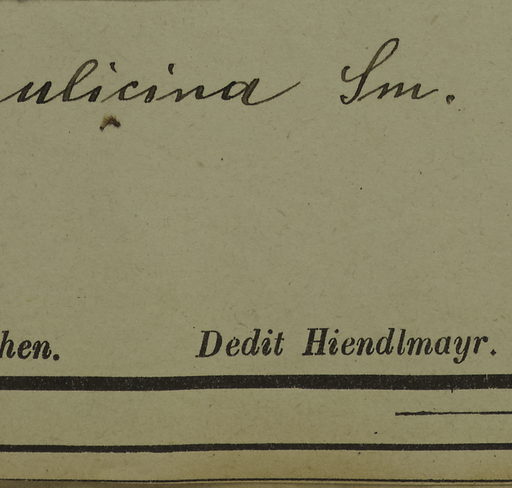 ulicina Sm.
hen. Dedit Hiendlmayr.